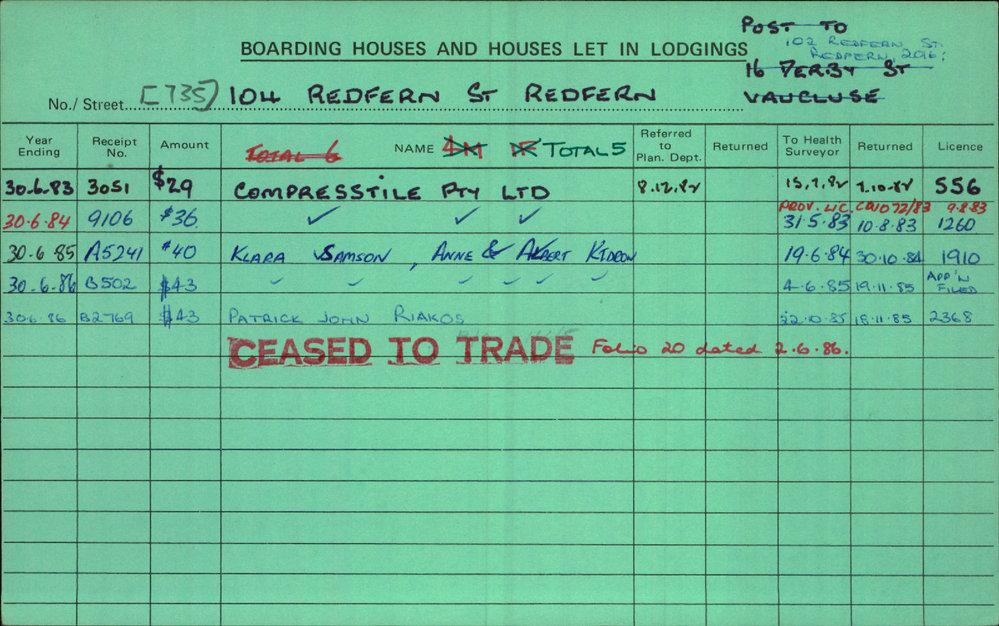 POST TO
102 REDFERN ST.
REDFERN, 2016;
BOARDING HOUSES AND HOUSES LET IN LODGINGS
16 DERBY ST
VAUCLUSE
No./Street [735] 104 REDFERN ST REDFERN
Year Ending Receipt No. Amount TOTAL 6 NAME 4M 1F TOTAL 5 Referred to Plan. Dept. Returned To Health Surveyor Returned Licence
30.6.83 3051 $29 COMPRESSTILE PTY LTD 8.12.82 15.7.82 7.10.82 556
PROV. LIC. COND 72/83 9.8.83
30.6.84 9106 $36 ✓ ✓ ✓ 31.5.83 10.8.83 1260
30.6.85 A5241 $40 KLARA SAMSON, ANNE & ALBERT KIDRON 19.6.84 30.10.84 1910
30.6.86 B502 $43 ✓ ✓ ✓ ✓ ✓ ✓ 4.6.85 19.11.85 APP'N FILED
30.6.86 B2769 $43 PATRICK JOHN RIAKOS 22.10.85 18.11.85 2368
CEASED TO TRADE Folio 20 dated 2.6.86.